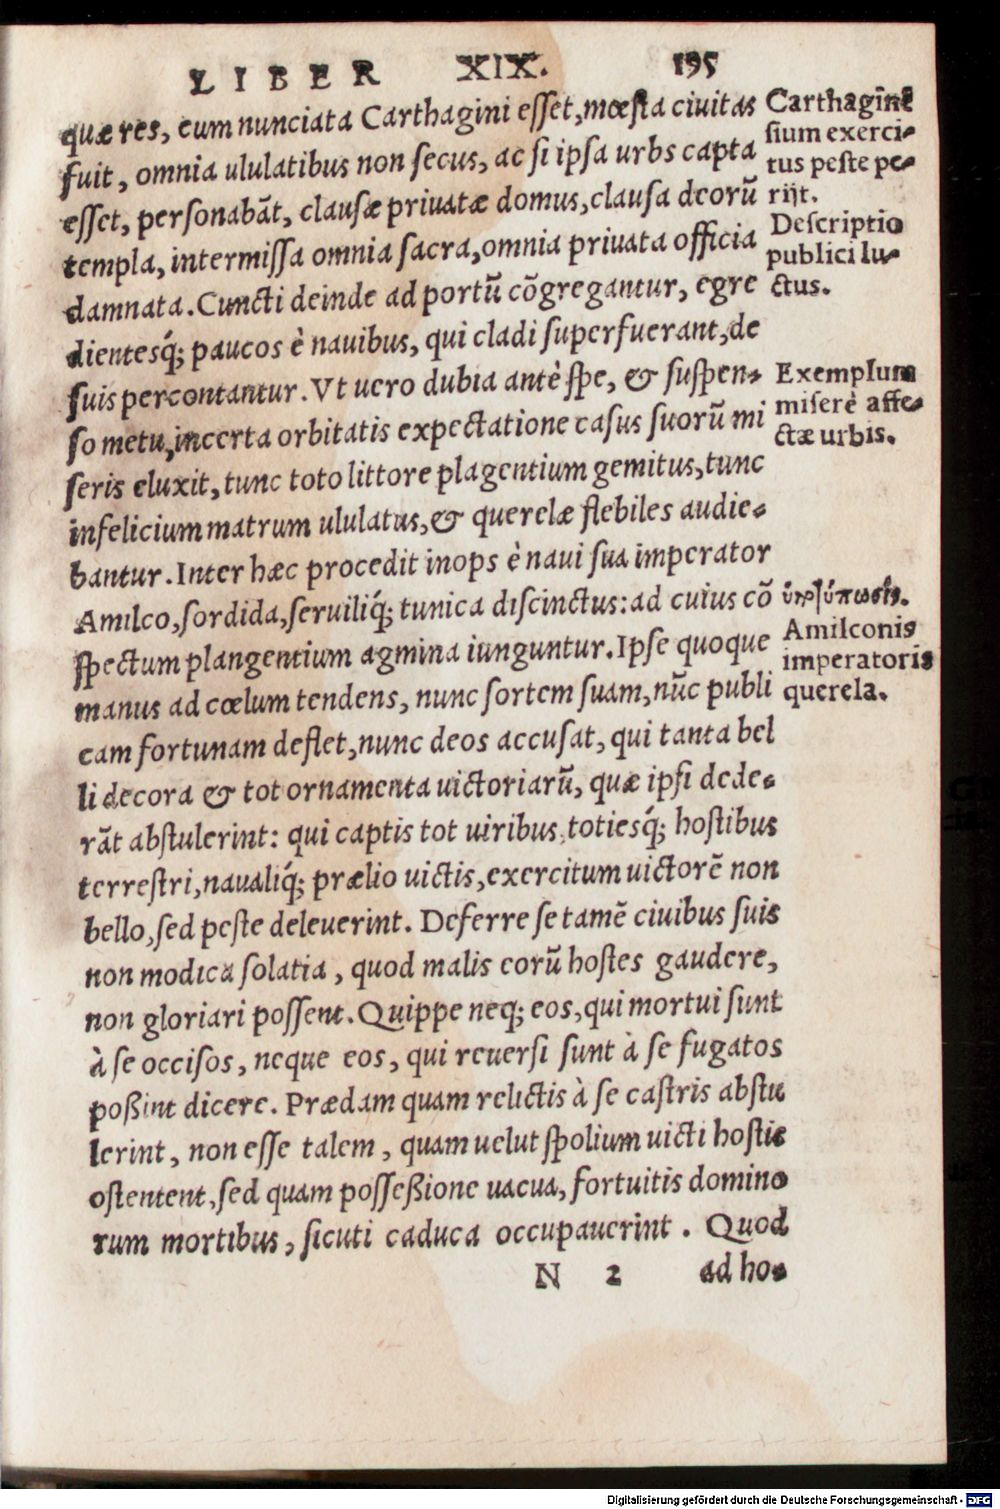 LIBER XIX. 195
quæ res, cum nunciata Carthagini eſſet, mœſta ciuitas
fuit, omnia ululatibus non ſecus, ac ſi ipſa urbs capta
eſſet, perſonabāt, clauſæ priuatæ domus, clauſa deorū
templa, intermiſſa omnia ſacra, omnia priuata officia
damnata. Cuncti deinde ad portū cōgregantur, egre
dientesq́; paucos è nauibus, qui cladi ſuperfuerant, de
ſuis percontantur. Vt uero dubia antè ſpe, & ſuſpen-
ſo metu, incerta orbitatis expectatione caſus ſuorū mi
ſeris eluxit, tunc toto littore plagentium gemitus, tunc
infelicium matrum ululatus, & querelæ flebiles audie-
bantur. Inter hæc procedit inops è naui ſua imperator
Amilco, ſordida, ſeruiliq́; tunica diſcinctus: ad cuius cō
ſpectum plangentium agmina iunguntur. Ipſe quoque
manus ad cœlum tendens, nunc ſortem ſuam, nūc publi
cam fortunam deflet, nunc deos accuſat, qui tanta bel
li decora & tot ornamenta uictoriarū, quæ ipſi dede-
rāt abſtulerint: qui captis tot uiribus, totiesq́; hoſtibus
terreſtri, naualiq́; prælio uictis, exercitum uictorē non
bello, ſed peſte deleuerint. Deferre ſe tamē ciuibus ſuis
non modica ſolatia, quod malis eorū hoſtes gaudere,
non gloriari poſſent. Quippe neq; eos, qui mortui ſunt
à ſe occiſos, neque eos, qui reuerſi ſunt à ſe fugatos
poßint dicere. Prædam quam relictis à ſe caſtris abſtu
lerint, non eſſe talem, quam uelut ſpolium uicti hoſtis
oſtentent, ſed quam poſſeßione uacua, fortuitis domino
rum mortibus, ſicuti caduca occupauerint. Quod
N 2 ad ho-
Carthaginē
ſium exerci-
tus peſte pe-
rijt.
Deſcriptio
publici lu-
ctus.
Exemplum
miſerè affe-
ctæ urbis.
Amilconis
imperatoris
querela.
Digitalisierung gefördert durch die Deutsche Forschungsgemeinschaft - DFG